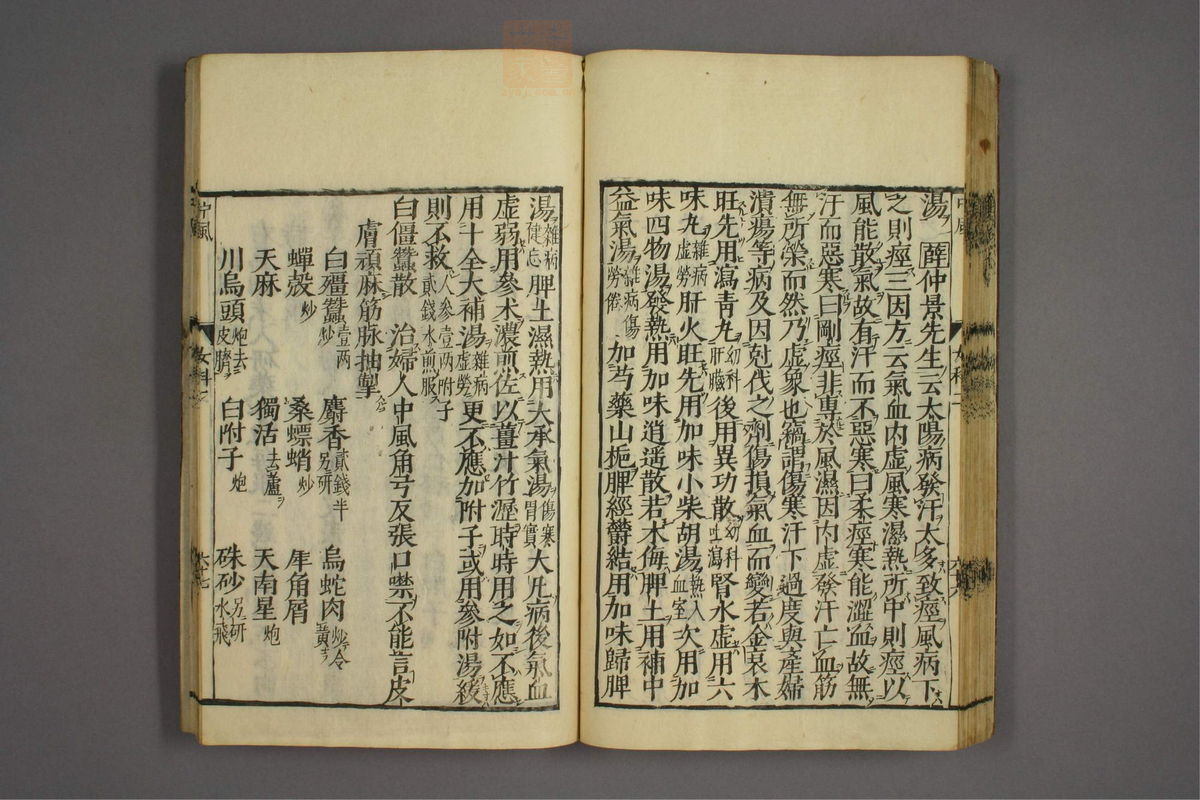 湯 薛仲景先生云太陽病發汗太多致痙風病下
之則痙三因方云氣血内虚風寒濕熱所中則痙以
風能散氣故有汗而不惡寒曰柔痙寒能澀血故無
汗而惡寒曰剛痙非專於風濕因内虚發汗亡血筋
無所榮而然乃虚象也竊謂傷寒汗下過度與產婦
潰瘍等病及因尅伐之劑傷損氣血而變若金衰木
旺先用瀉青丸幼科肝臟後用異功散幼科吐瀉腎水虚用六
味丸雜病虚勞肝火旺先用加味小柴胡湯熱入血室次用加
味四物湯發熱用加味逍遥散若木侮脾土用補中
益氣湯雜病勞倦傷加芍藥山梔脾經鬱結用加味歸脾
湯雜病健忘脾土濕熱用大承氣湯傷寒胃實大凡病後氣血
虚弱用參术濃煎佐以薑汁竹瀝時時用之如不應
用十全大補湯雜病虚勞更不應加附子或用參附湯緩
則不救人參壹两附子貳錢水煎服
白僵蠶散 治婦人中風角弓反張口噤不能言皮
膚頑麻筋脉抽掣
白殭蠶炒壹两 麝香貳錢半另研 烏蛇肉
蟬殼炒 桑螵蛸炒 犀角屑
天麻 獨活去蘆 天南星炮
川烏頭炮去皮臍 白附子炮 硃砂另研水飛
中風
女科二
六七